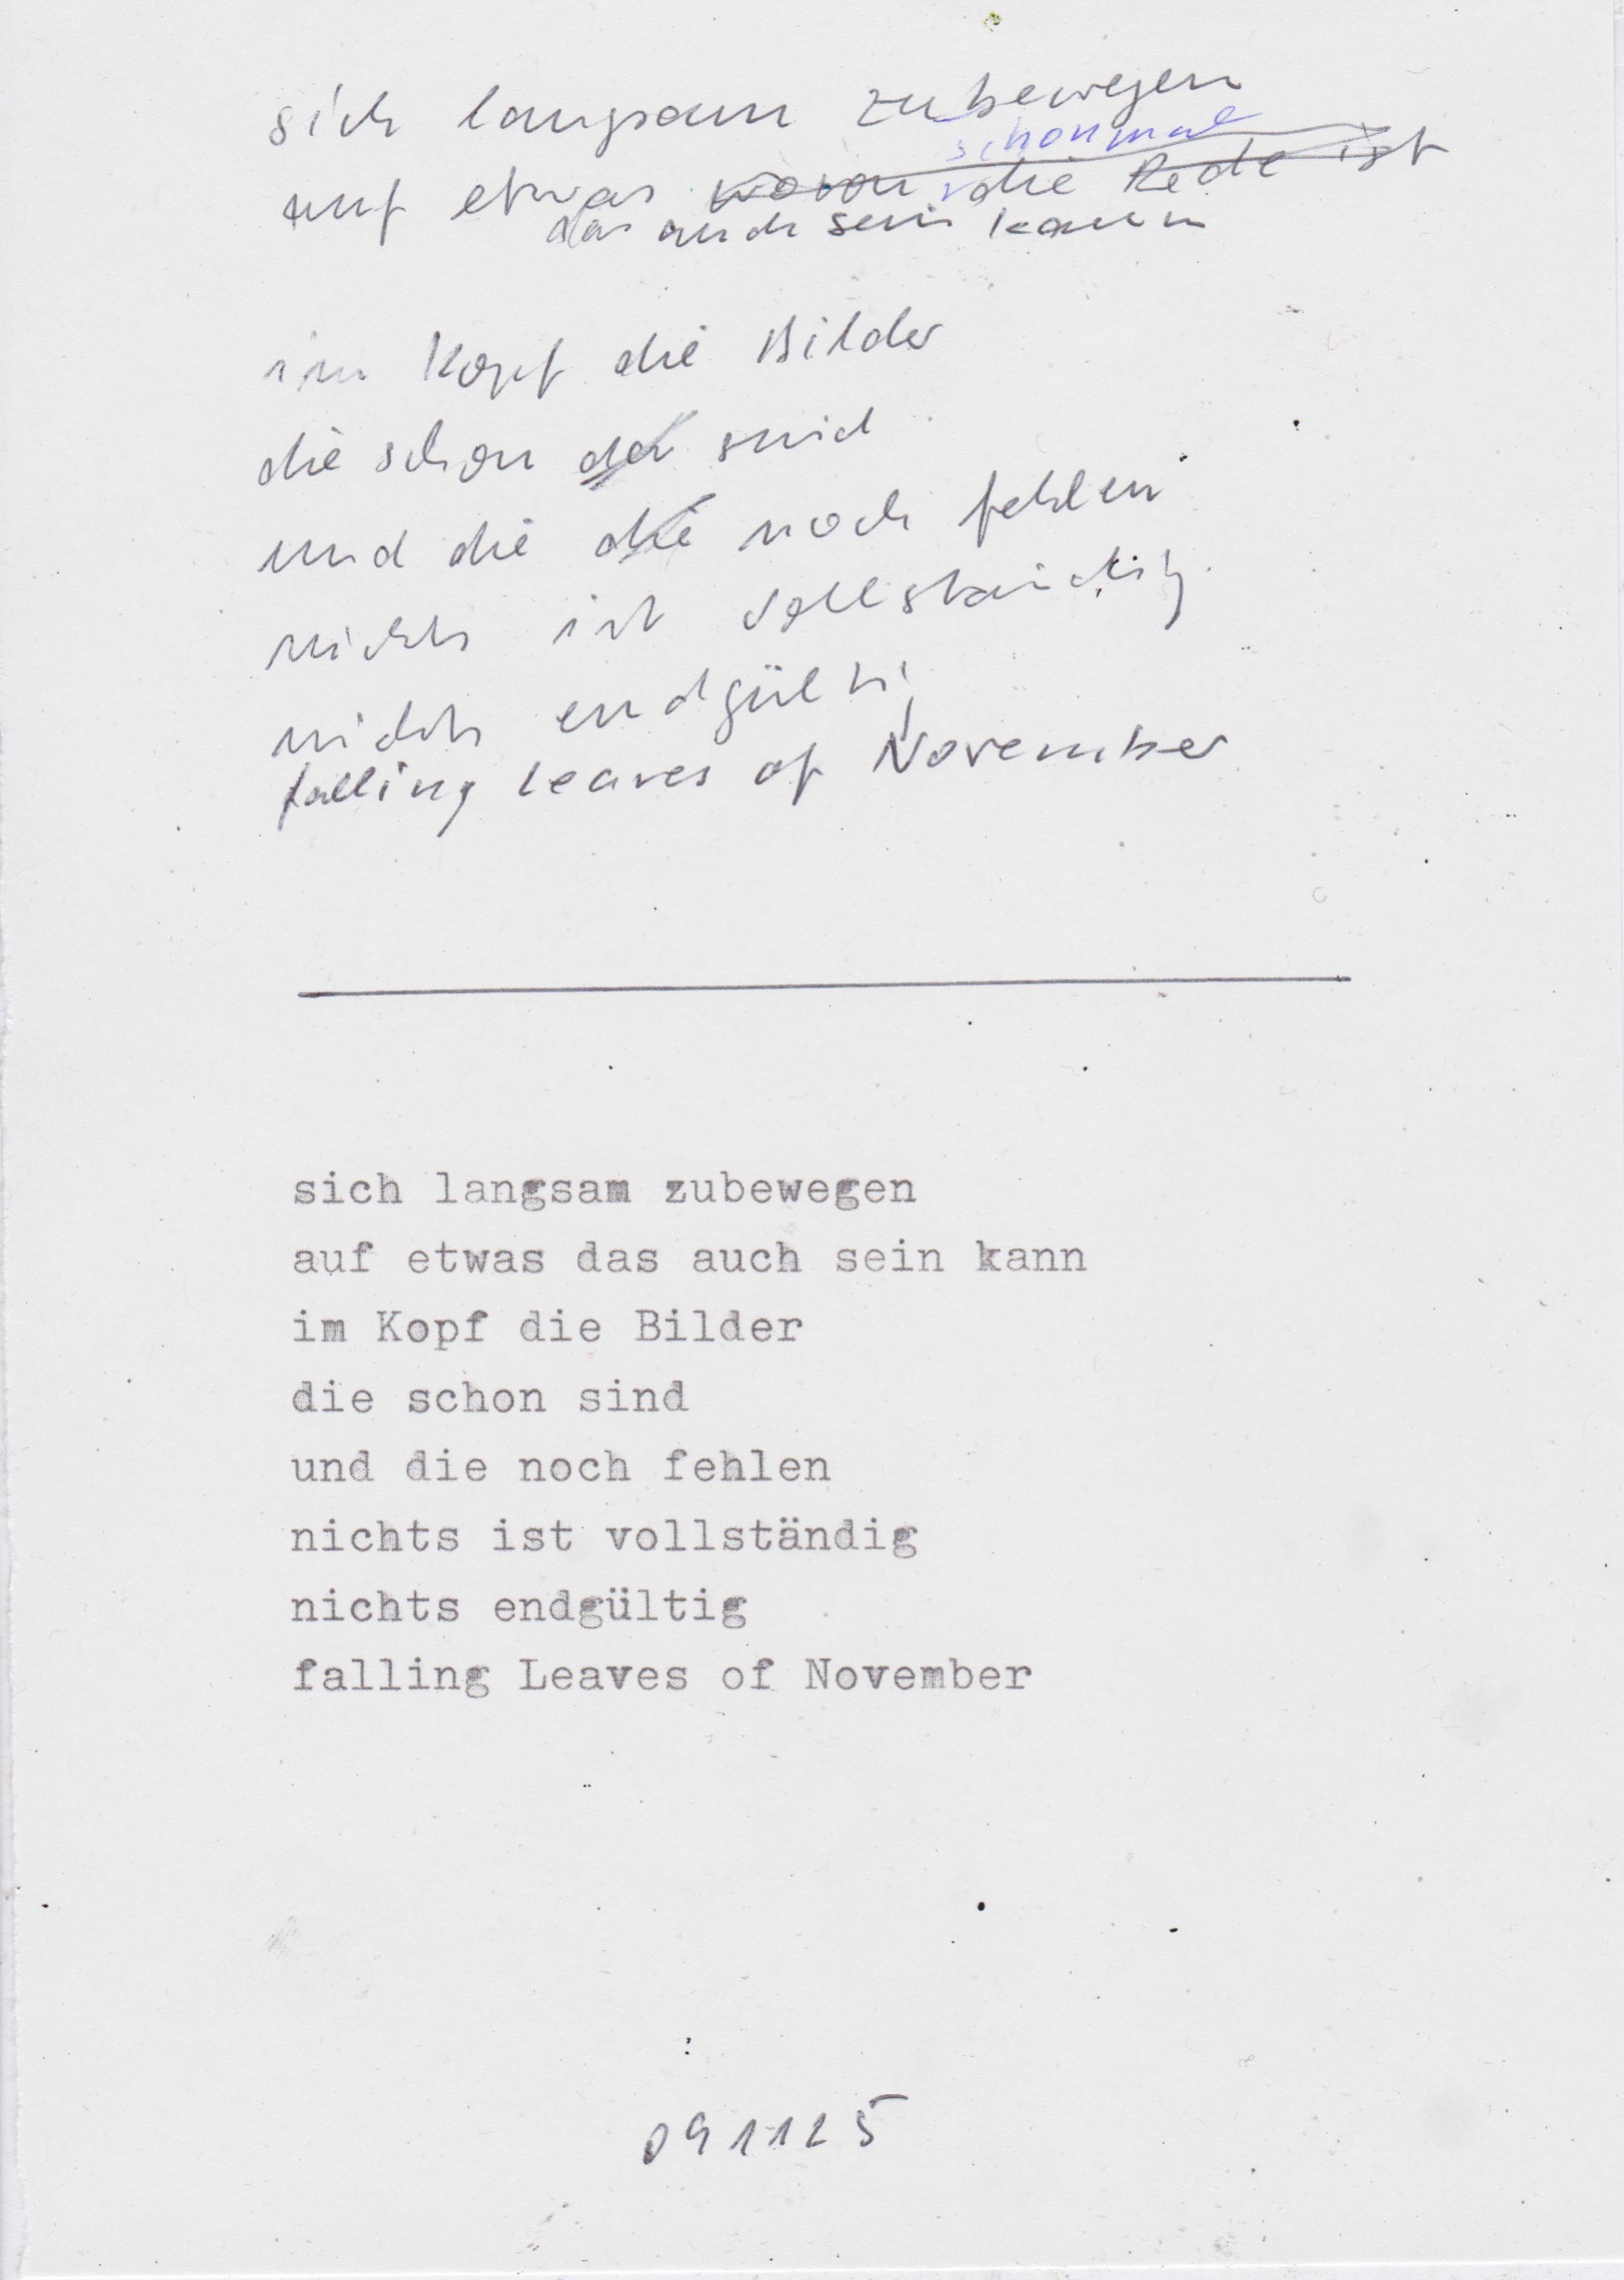 sich langsam zubewegen
schonmal
auf etwas wovon die Rede ist
das auch sein kann
im Kopf die Bilder
die schon da sind
und die die noch fehlen
nichts ist vollständig
nichts endgültig
falling leaves of November
sich langsam zubewegen
auf etwas das auch sein kann
im Kopf die Bilder
die schon sind
und die noch fehlen
nichts ist vollständig
nichts endgültig
falling Leaves of November
091125